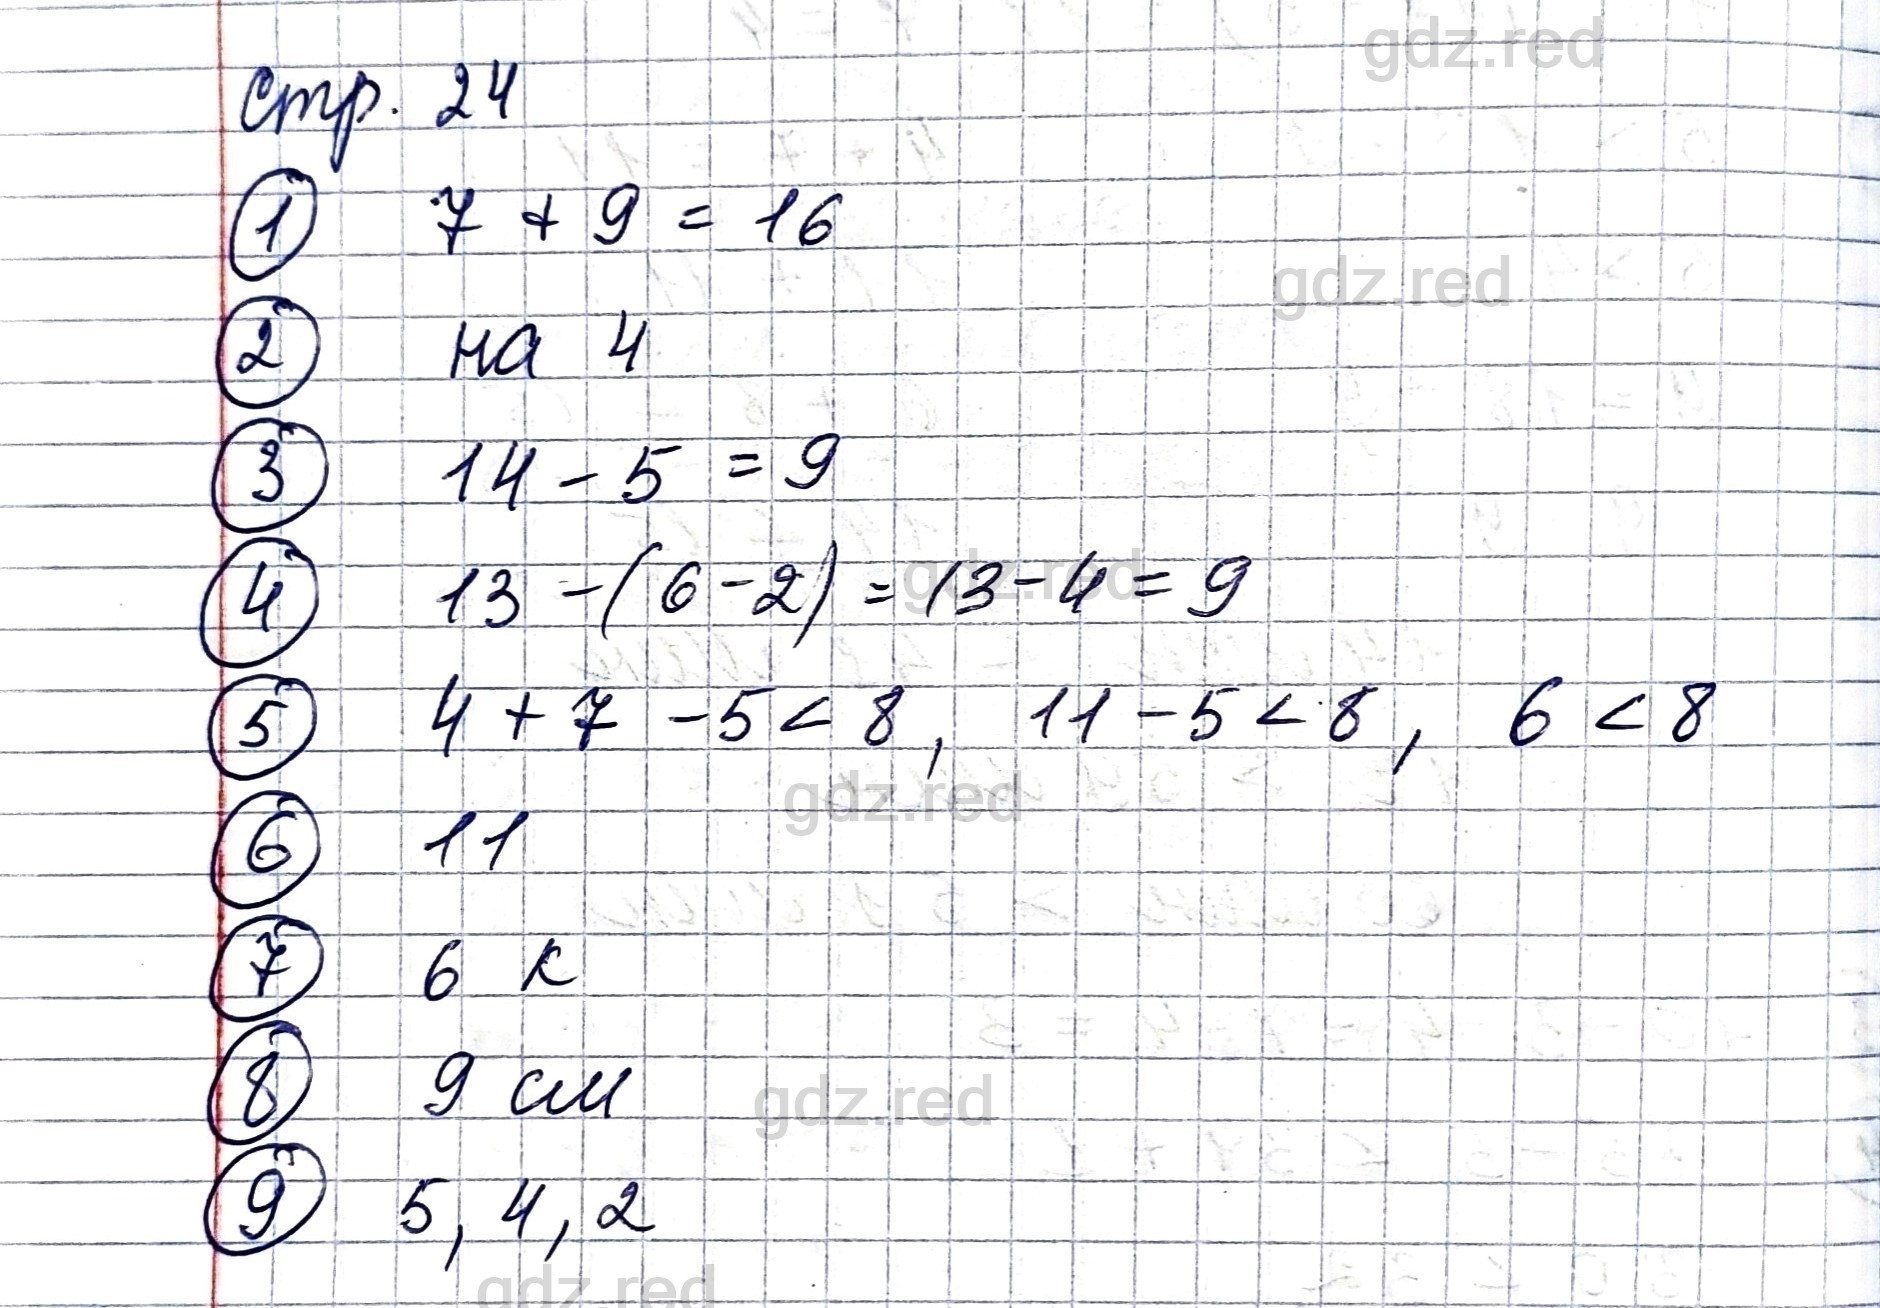 gdz.red
стр. 24
1 7 + 9 = 16
gdz.red
2 на 4
3 14 - 5 = 9
4 13 - (6 - 2) = 13 - 4 = 9
gdz.red
5 4 + 7 - 5 < 8, 11 - 5 < 8, 6 < 8
gdz.red
6 11
7 6 к
8 9 см
gdz.red
9 5, 4, 2
gdz.red